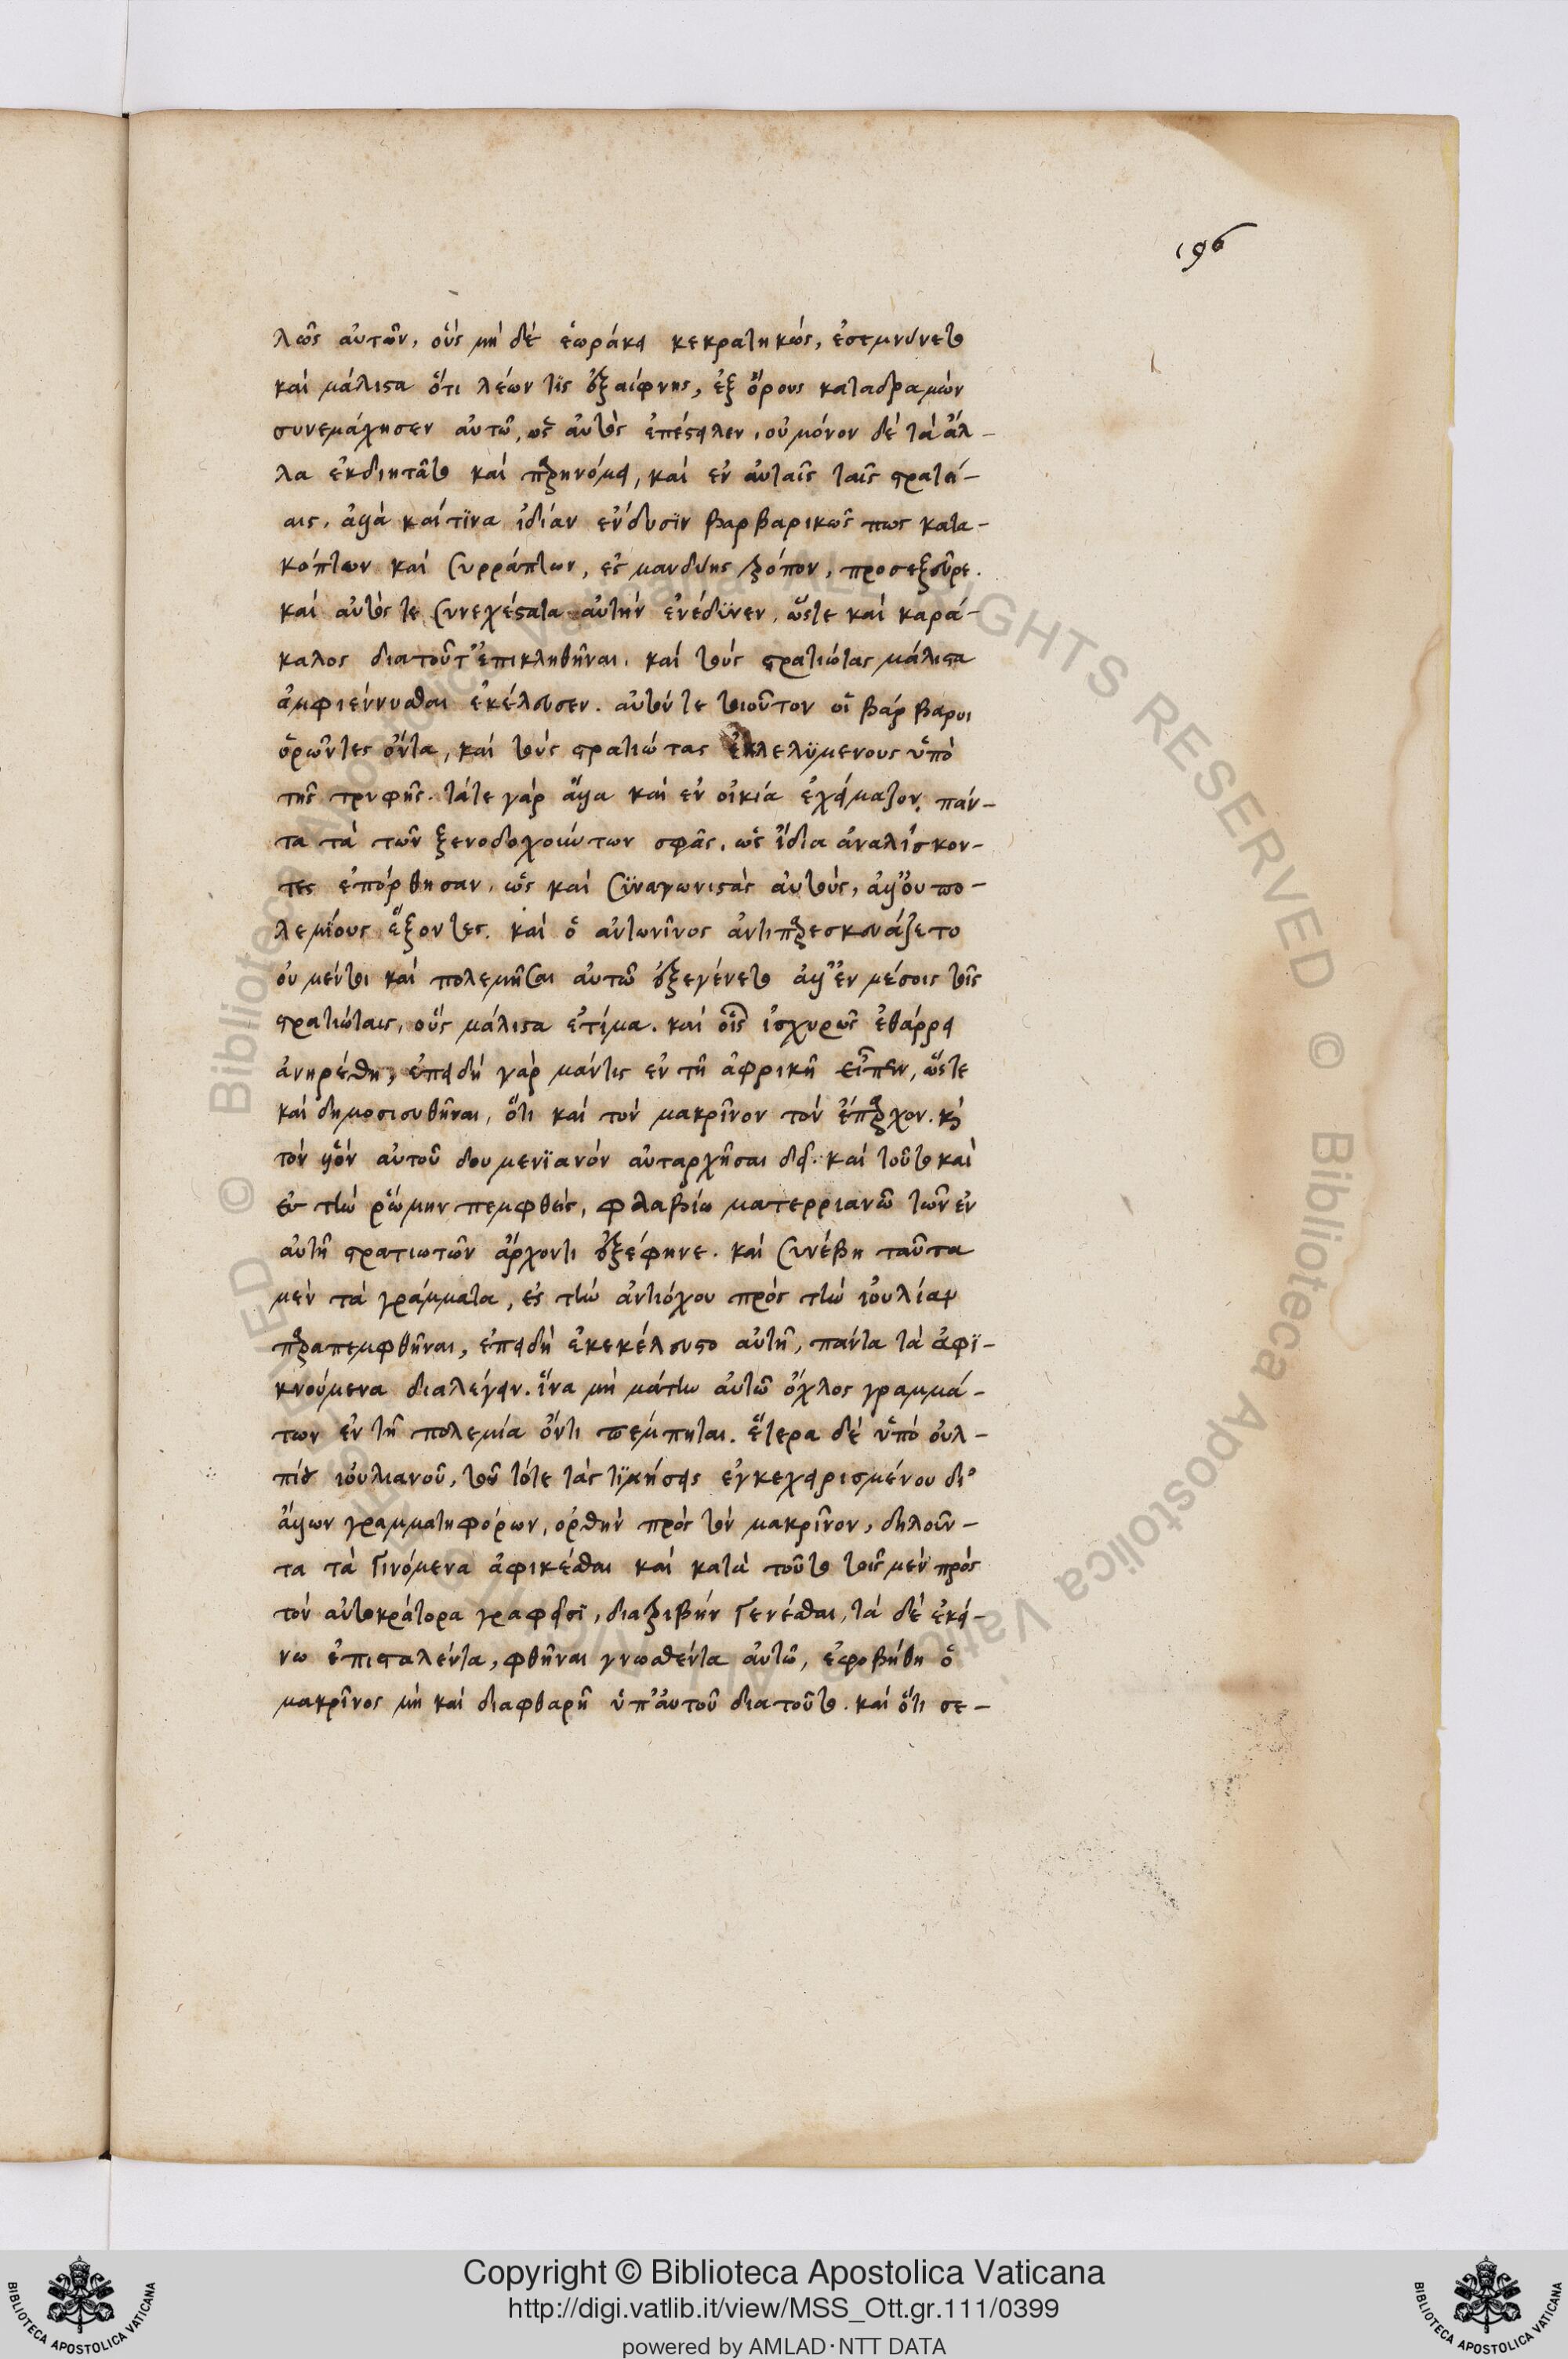 196
λῶς αὐτῶν, οὓς μὴ δὲ ἑωράκει κεκρατηκώς, ἐσεμνύνετο
καὶ μάλιστα ὅτι λέων τὶς ἐξαίφνης, ἐξ ὄρους καταδραμὼν
συνεμάχησεν αὐτῶ, ὡς αὐτὸς ἐπέστειλεν, οὐ μόνον δὲ τὰ ἄλ-
λα ἐκδιητᾶτο καὶ παρηνόμει, καὶ ἐν αὐταῖς ταῖς στρατεί-
αις. ἀλλὰ καίτινα ἰδίαν ἔνδυσιν βαρβαρικῶς πως κατα-
κόπτων καὶ συρράπτων, ἐς μανδύης τρόπον, προσεξεῦρε.
καὶ αὐτός τε συνεχέστατα αὐτὴν ἐνέδυνεν, ὥστε καὶ καρά-
καλος διατοῦτ' ἐπικληθῆναι. καὶ τοὺς στρατιώτας μάλιστα
ἀμφιέννυσθαι ἐκέλευσεν. αὐτόν τε τοιοῦτον οἱ βάρβαροι
ὁρῶντες ὄντα, καὶ τοὺς στρατιώτας ἐκλελυμένους ὑπὸ
τῆς τρυφῆς. τάτε γὰρ ἄλλα καὶ ἐν οἰκία ἐχείμαζον, πάν-
τα τὰ τῶν ξενοδοχούντων σφᾶς, ὡς ἴδια ἀναλίσκον-
τες ἐπόρθησαν, ὡς καὶ συναγωνιστὰς αὐτούς, ἀλλ' οὐ πο-
λεμίους ἕξοντες. καὶ ὁ ἀντωνῖνος ἀντιπαρεσκευάζετο
οὐ μέντοι καὶ πολεμῆσαι αὐτῶ ἐξεγένετο ἀλλ' ἐν μέσοις τοῖς
στρατιώταις, οὓς μάλιστα ἐτίμα. καὶ οἷς ἰσχυρῶς ἐθάρρει
ἀνηρέθη, ἐπειδὴ γὰρ μάντις ἐν τῆ ἀφρικῆ εἶπεν, ὥστε
καὶ δημοσιευθῆναι, ὅτι καὶ τὸν μακρῖνον τὸν ἔπαρχον. καὶ
τὸν υἱὸν αὐτοῦ δουμενϊανὸν αὐταρχῆσαι δεῖ. καὶ τοῦτο καὶ
ἐς τὴν ῥώμην πεμφθεὶς, φλαβίω ματερριανῶ τῶν ἐν
αὐτῆ στρατιωτῶν ἄρχοντι ἐξέφηνε. καὶ συνέβη ταῦτα
μὲν τὰ γράμματα, ἐς τὴν ἀντιόχου πρὸς τὴν ἰουλίαν
παραπεμφθῆναι, ἐπειδὴ ἐκεκέλευστο αὐτῆ, πάντα τὰ ἀφϊ-
κνούμενα διαλέγειν. ἵνα μὴ μάτην αὐτῶ ὄχλος γραμμά-
των ἐν τῆ πολεμία ὄντι πέμπηται. ἕτερα δὲ ὑπὸ οὐλ-
πίου ἰουλιανοῦ, τοῦ τότε τὰς τιμήσεις ἐγκεχειρισμένου δι'
ἄλλων γραμματηφόρων, ὀρθὴν πρὸς τὸν μακρῖνον, δηλοῦν-
τα τὰ γινόμενα ἀφικέσθαι καὶ κατὰ τοῦτο τοῖς μὲν πρὸς
τὸν αὐτοκράτορα γραφεῖσϊ, διατριβὴν γενέσθαι, τὰ δὲ ἐκεί-
νω ἐπισταλέντα, φθῆναι γνωσθέντα αὐτῶ, ἐφοβήθη ὁ
μακρῖνος μὴ καὶ διαφθαρῆ ὑπ' αὐτοῦ διατοῦτο. καὶ ὅτι σε-
Copyright © Biblioteca Apostolica Vaticana
http://digi.vatlib.it/view/MSS_Ott.gr.111/0399
powered by AMLAD·NTT DATA